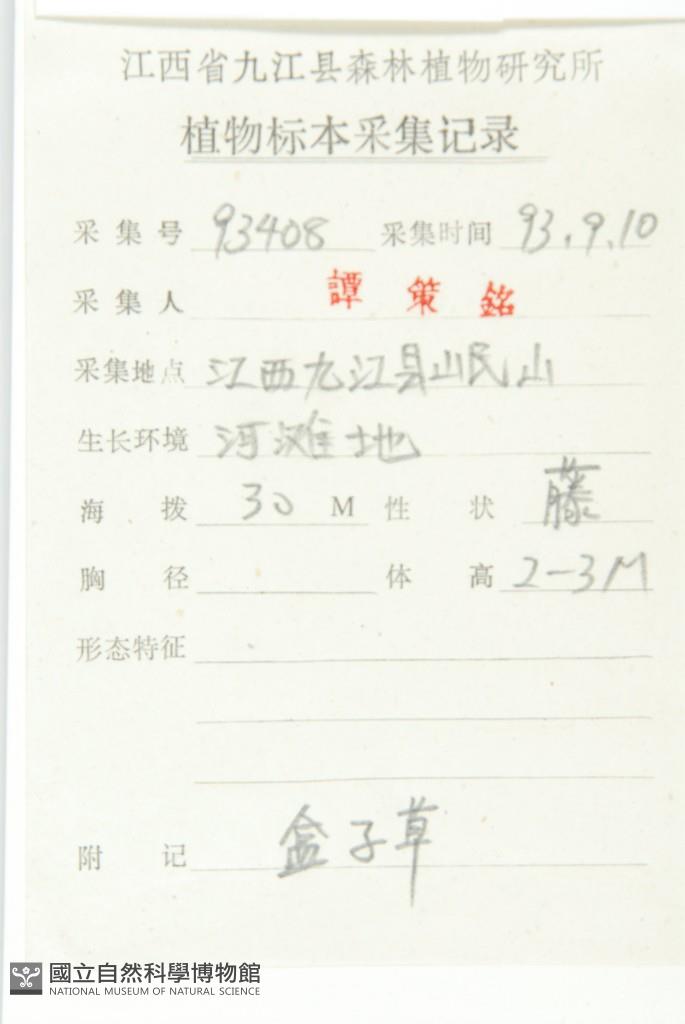 江西省九江县森林植物研究所
植物标本采集记录
采集号 93408 采集时间 93.9.10
采集人 譚策銘
采集地点 江西九江县岷山
生长环境 河滩地
海拨 30 M 性状 藤
胸径 体高 2-3M
形态特征
附记 盒子草
國立自然科學博物館
NATIONAL MUSEUM OF NATURAL SCIENCE